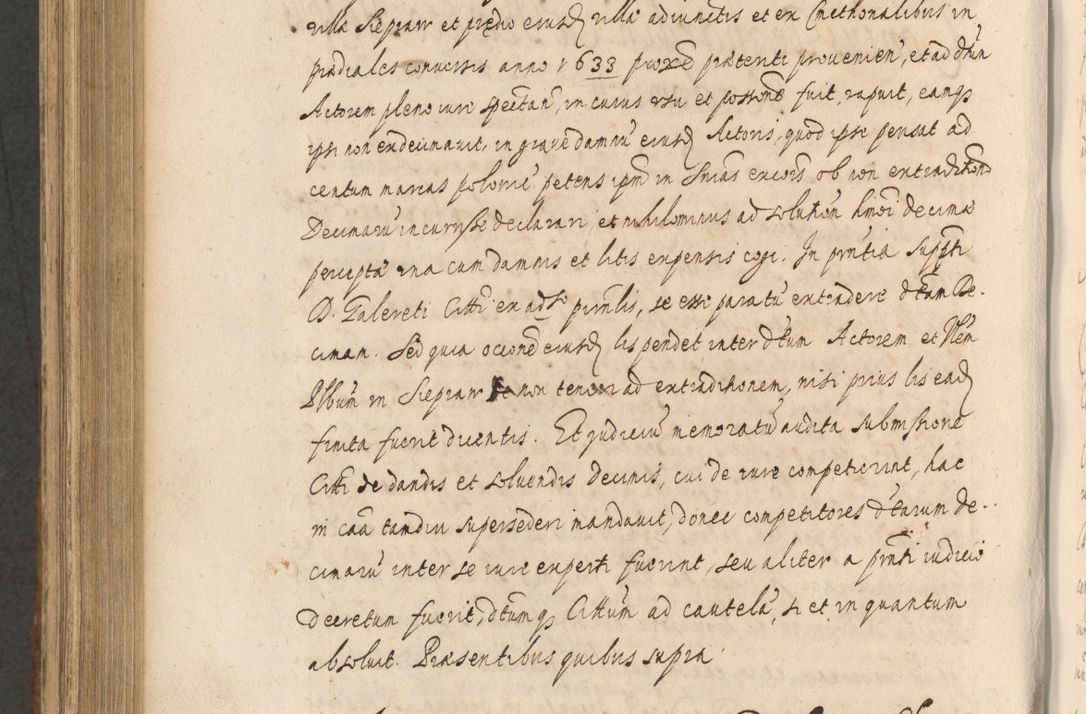 villa Siepraw et prædio eiusd villæ adiunctis et ex Cmethonalibus in
prædiales conversis anno 1633 proxe præterito provenien, et ad dtum
Actorem pleno iure spectan, in cuius usu et possone fuit, rapuit, eamq
ipsi non exdecimavit, in grave damnu eiusd Actoris, quod ipse pensat ad
centum marcas polonic petens ipm in Snias excois ob non extraditiond
Decimaru incurrisse declarari, et nihilominus ad solution hmoi decimæ
perceptæ una cum damnis et litis expensis cogi. In pntia suppti
D. Galereti Citti ex adso pnrlis, se esse paratu extradere dtam De-
cimam. Sed quia ocione eiusd lis pendet inter dtum Actorem et
Plbum in Siepraw non teneri ad extraditionem, nisi prius lis ead
finita fuerit dicentis. Et Iudiciu memoratu audita submissione
Citti de dandis et solvendis Decimis, cui de iure competierint, hac
in caa tamdiu supersederi mandavit, donec competitores dtarum de-
cimaru inter se iure experti fuerint, seu aliter a pnti iudicio
decretum fuerit, dtumq Cittum ad cautelã, si et in quantum
absolvit. Præsentibus quibus supra